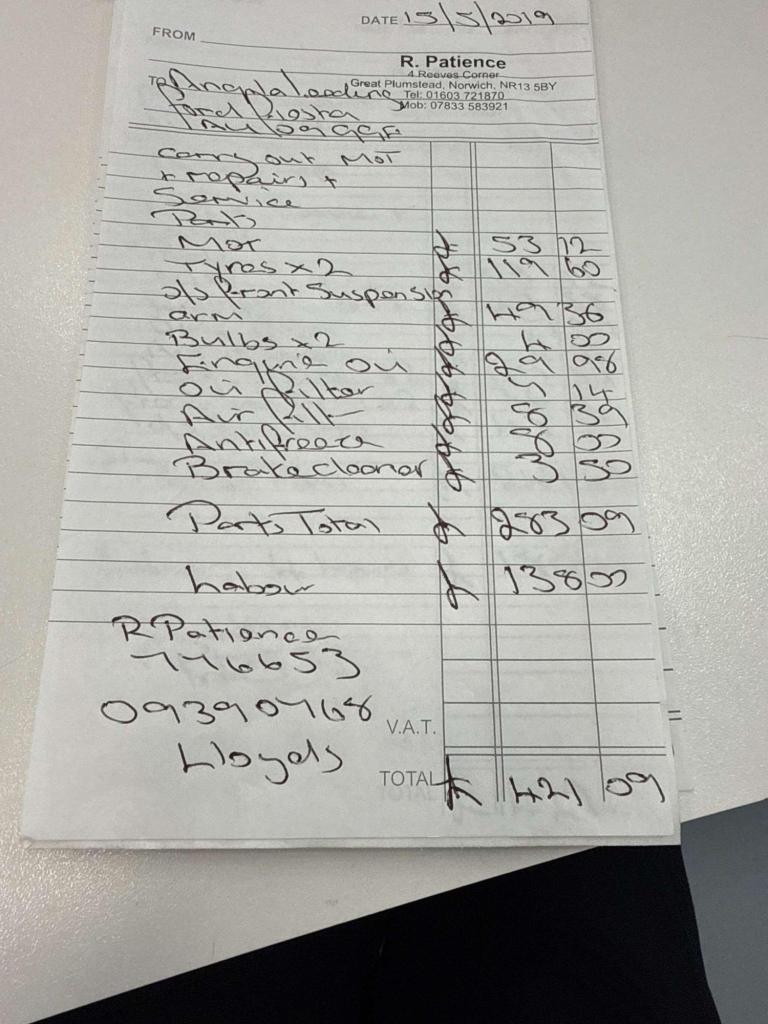 DATE 15/5/2019
FROM
R. Patience
4 Reeves Corner
Great Plumstead, Norwich, NR13 5BY
Tel: 01603 721870
Mob: 07833 583921
TO Angela Leeding
Ford Fiesta
Carry out MOT
+ repairs +
Service
Parts
MOT £ 53 12
Tyres x2 £ 119 60
o/s Front Suspension
arm £ 49 36
Bulbs x2 £ 4 00
Engine Oil £ 29 98
Oil Filter £ 7 14
Air Filter £ 8 39
Antifreeze £ 8 00
Brake cleaner £ 3 50
Parts Total £ 283 09
Labour £ 138 00
R Patience
776653
09390768
Lloyds
V.A.T.
TOTAL £ 421 09